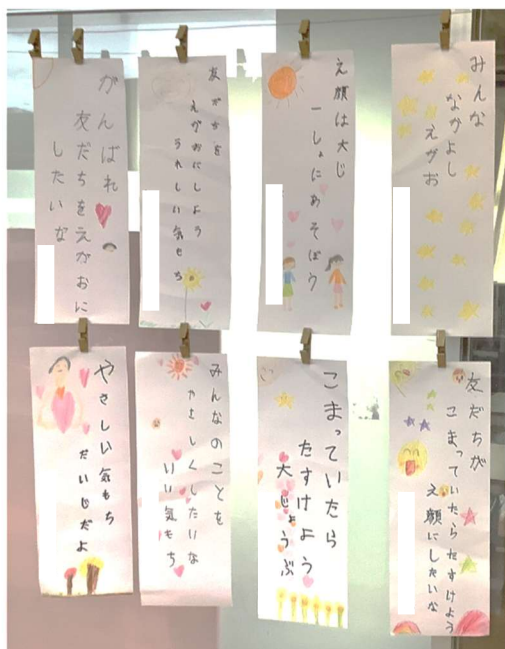 みんな
なかよし
えがお
え顔は大じ
一しょにあそぼう
友だちを
えがおにしよう
うれしい気もち
がんばれ
友だちをえがおに
したいな
友だちが
こまっていたらたすけよう
え顔にしたいな
こまっていたら
たすけよう
大じょうぶ
みんなのことを
やさしくしたいな
いい気もち
やさしい気もち
だいじだよ